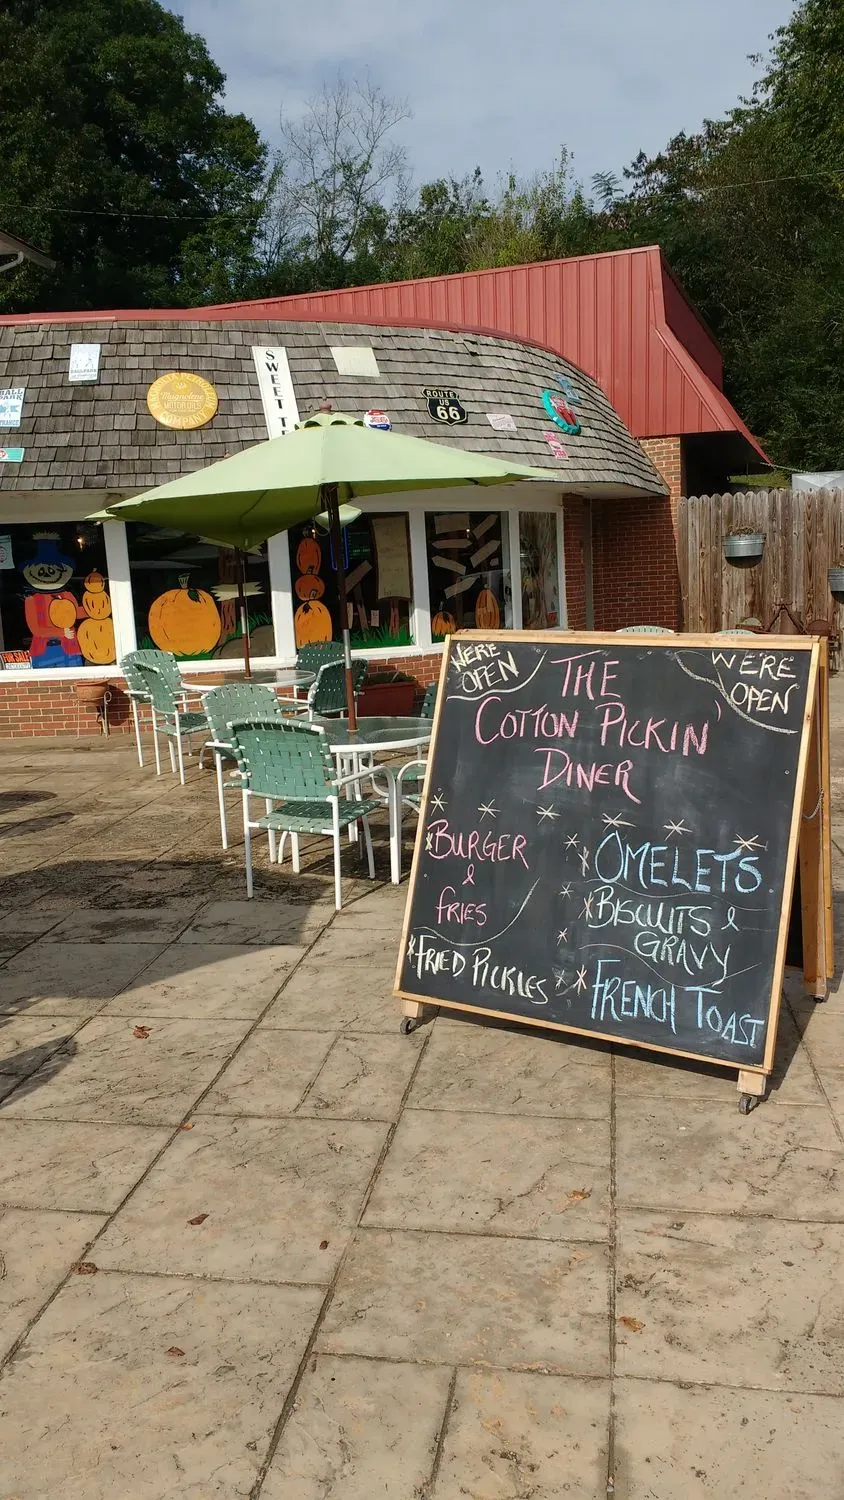 BALLPARK
SWEET T
Magnolene
MOTOR OILS
COMPANY
ROUTE
US
66
FOR SALE
WE'RE
OPEN
WE'RE
OPEN
THE
COTTON PICKIN'
DINER
BURGER
&
FRIES
*FRIED PICKLES
OMELETS
BISCUITS &
GRAVY
FRENCH TOAST